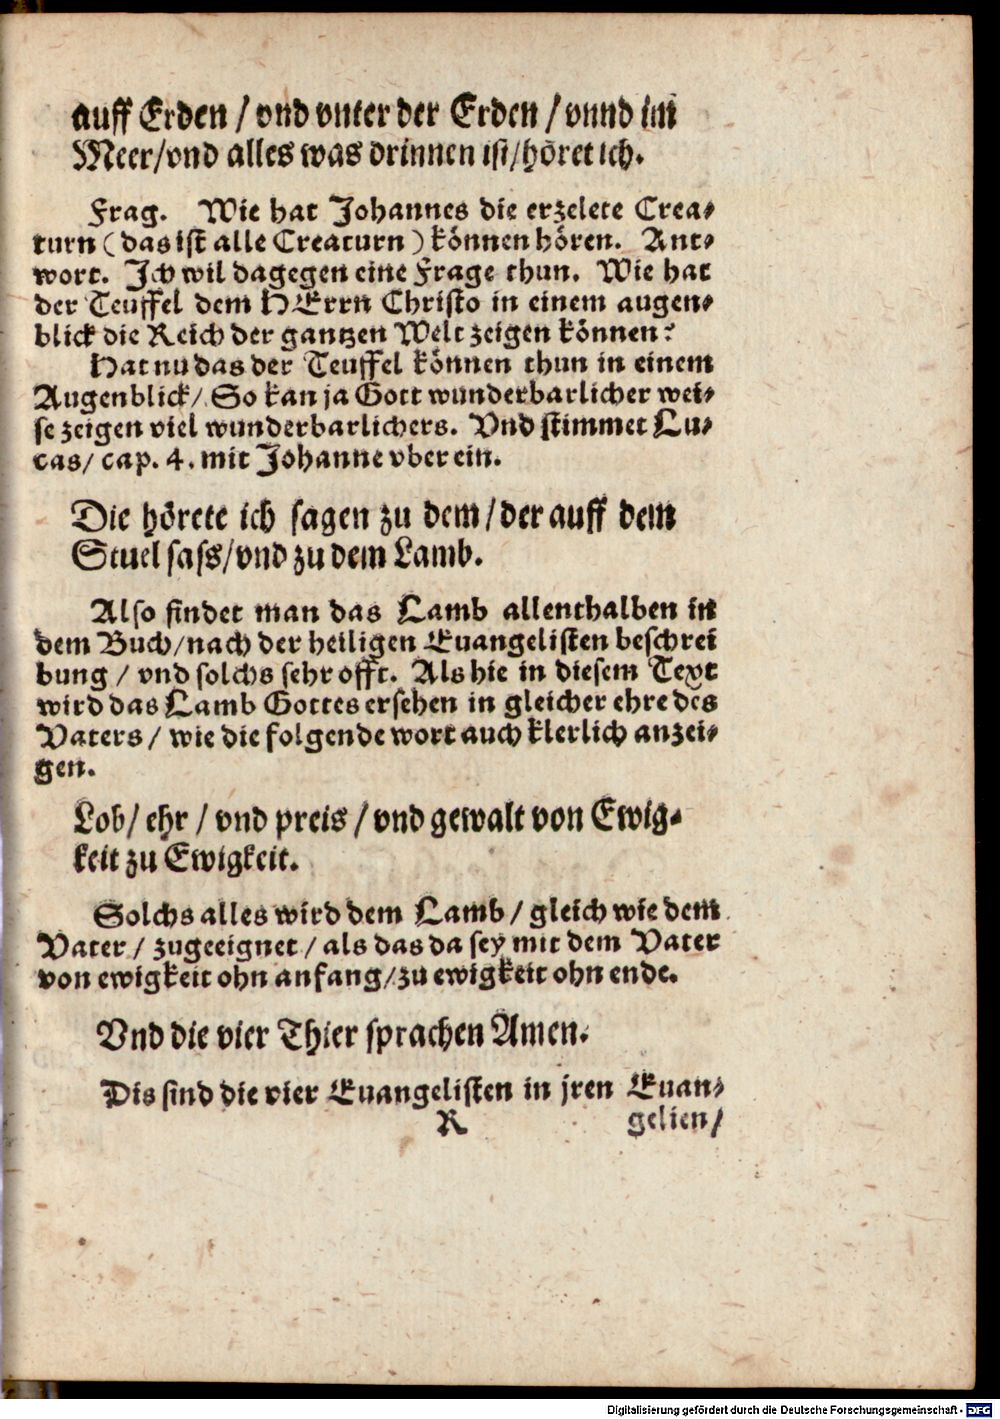 auff Erden / vnd vnter der Erden / vnnd im
Meer/vnd alles was drinnen ist/höret ich.
Frag. Wie hat Johannes die erzelete Crea-
turn (das ist alle Creaturn) können hören. Ant-
wort. Ich wil dagegen eine Frage thun. Wie hat
der Teuffel dem HErrn Christo in einem augen-
blick die Reich der gantzen Welt zeigen können?
Hat nu das der Teuffel können thun in einem
Augenblick/ So kan ja Gott wunderbarlicher wei-
se zeigen viel wunderbarlichers. Vnd stimmet Lu-
cas/ cap. 4. mit Johanne vber ein.
Die hörete ich sagen zu dem/der auff dem
Stuel sass/vnd zu dem Lamb.
Also findet man das Lamb allenthalben in
dem Buch/nach der heiligen Euangelisten beschrei
bung / vnd solchs sehr offt. Als hie in diesem Text
wird das Lamb Gottes ersehen in gleicher ehre des
Vaters / wie die folgende wort auch klerlich anzei-
gen.
Lob/ ehr / vnd preis / vnd gewalt von Ewig-
keit zu Ewigkeit.
Solchs alles wird dem Lamb / gleich wie dem
Vater / zugeeignet / als das da sey mit dem Vater
von ewigkeit ohn anfang/zu ewigkeit ohn ende.
Vnd die vier Thier sprachen Amen.
Dis sind die vier Euangelisten in jren Euan-
R gelien/
Digitalisierung gefördert durch die Deutsche Forschungsgemeinschaft - DFG